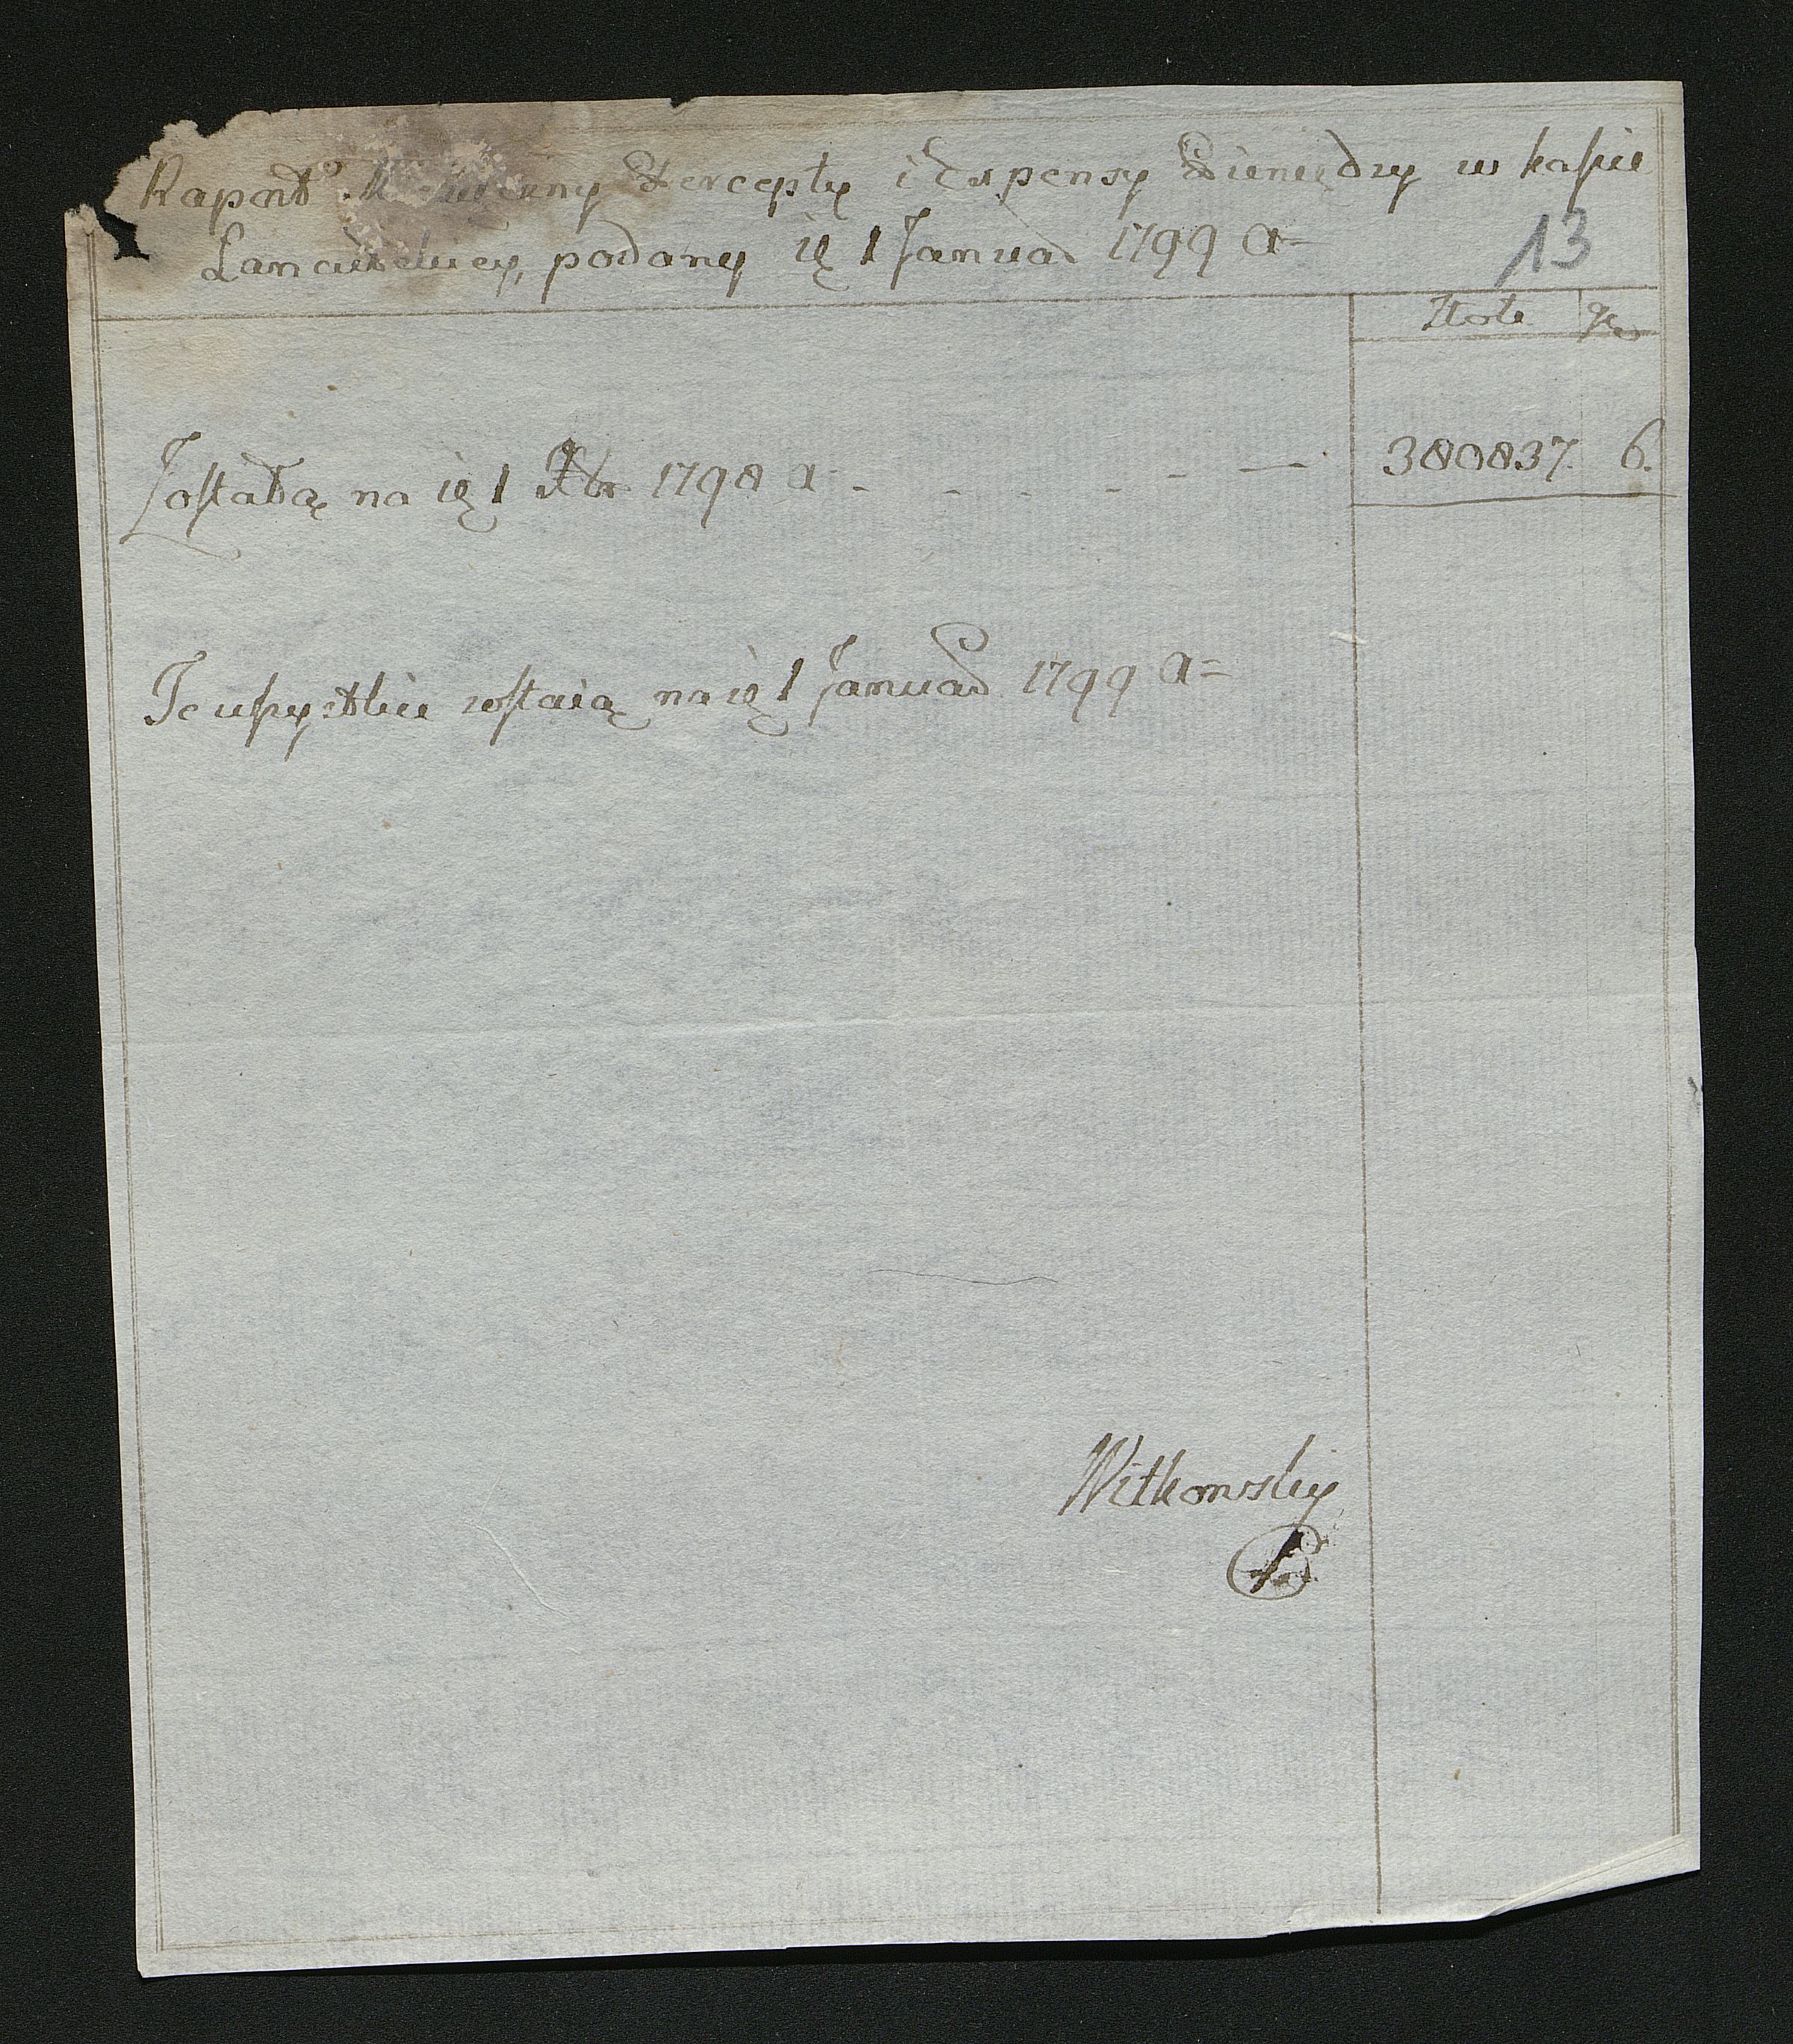 Raport Miesięczny Percepty i Expensy Pieniędzy w kaſsie
Łancutskiey, podany ię 1 Januar 1799 a=
13
Złote gr
Zoſtało na ię 1 Xbr 1798 a - - - - - - — 380837. 6.
Te wſzystkie zoſtaią na ię 1 Januar 1799 a=
Witkowsky